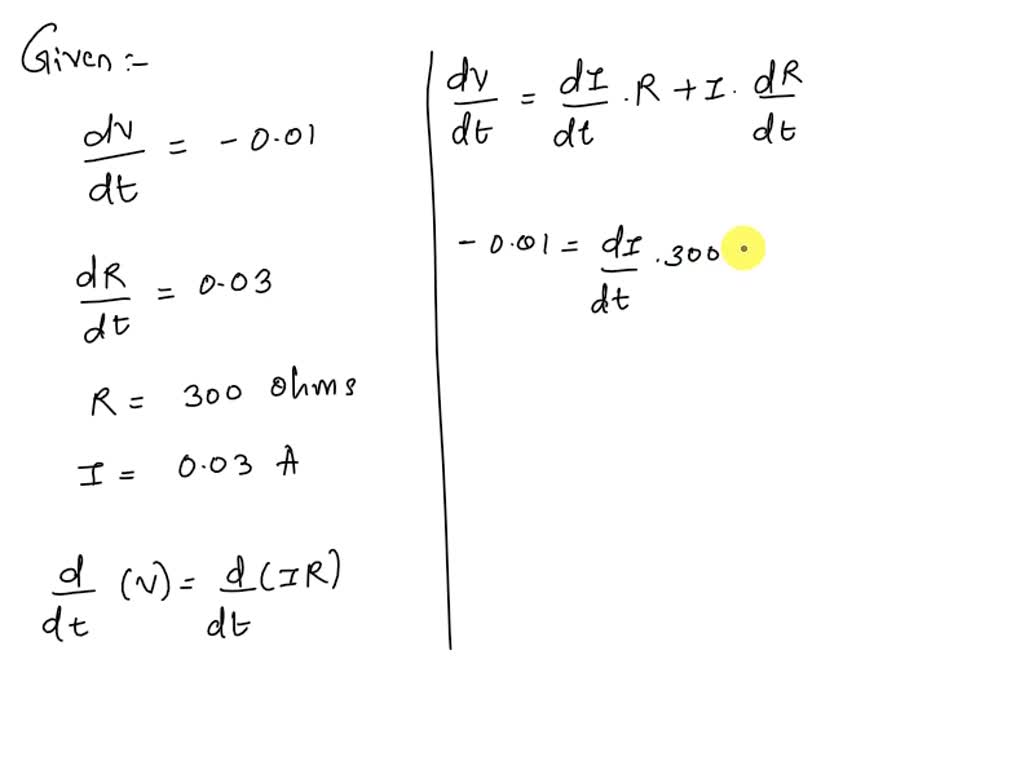 Given :-
dv/dt = - 0.01
dR/dt = 0.03
R = 300 ohms
I = 0.03 A
d/dt (V) = d/dt (IR)
dv/dt = dI/dt . R + I . dR/dt
- 0.01 = dI/dt . 300